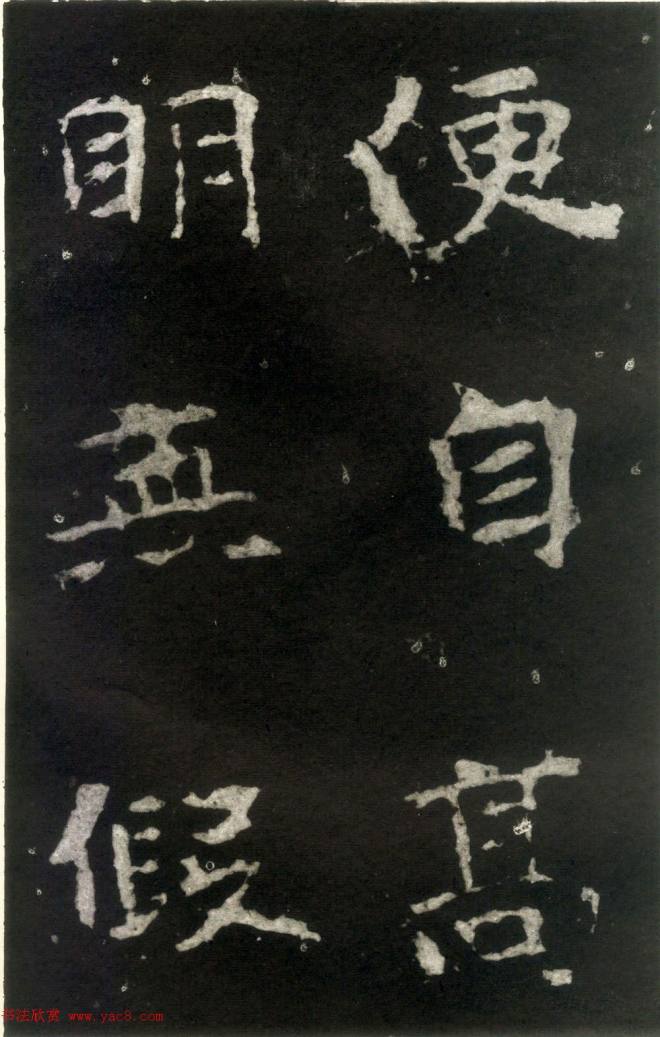 便自髙
明無假
书法欣赏 www.yac8.com